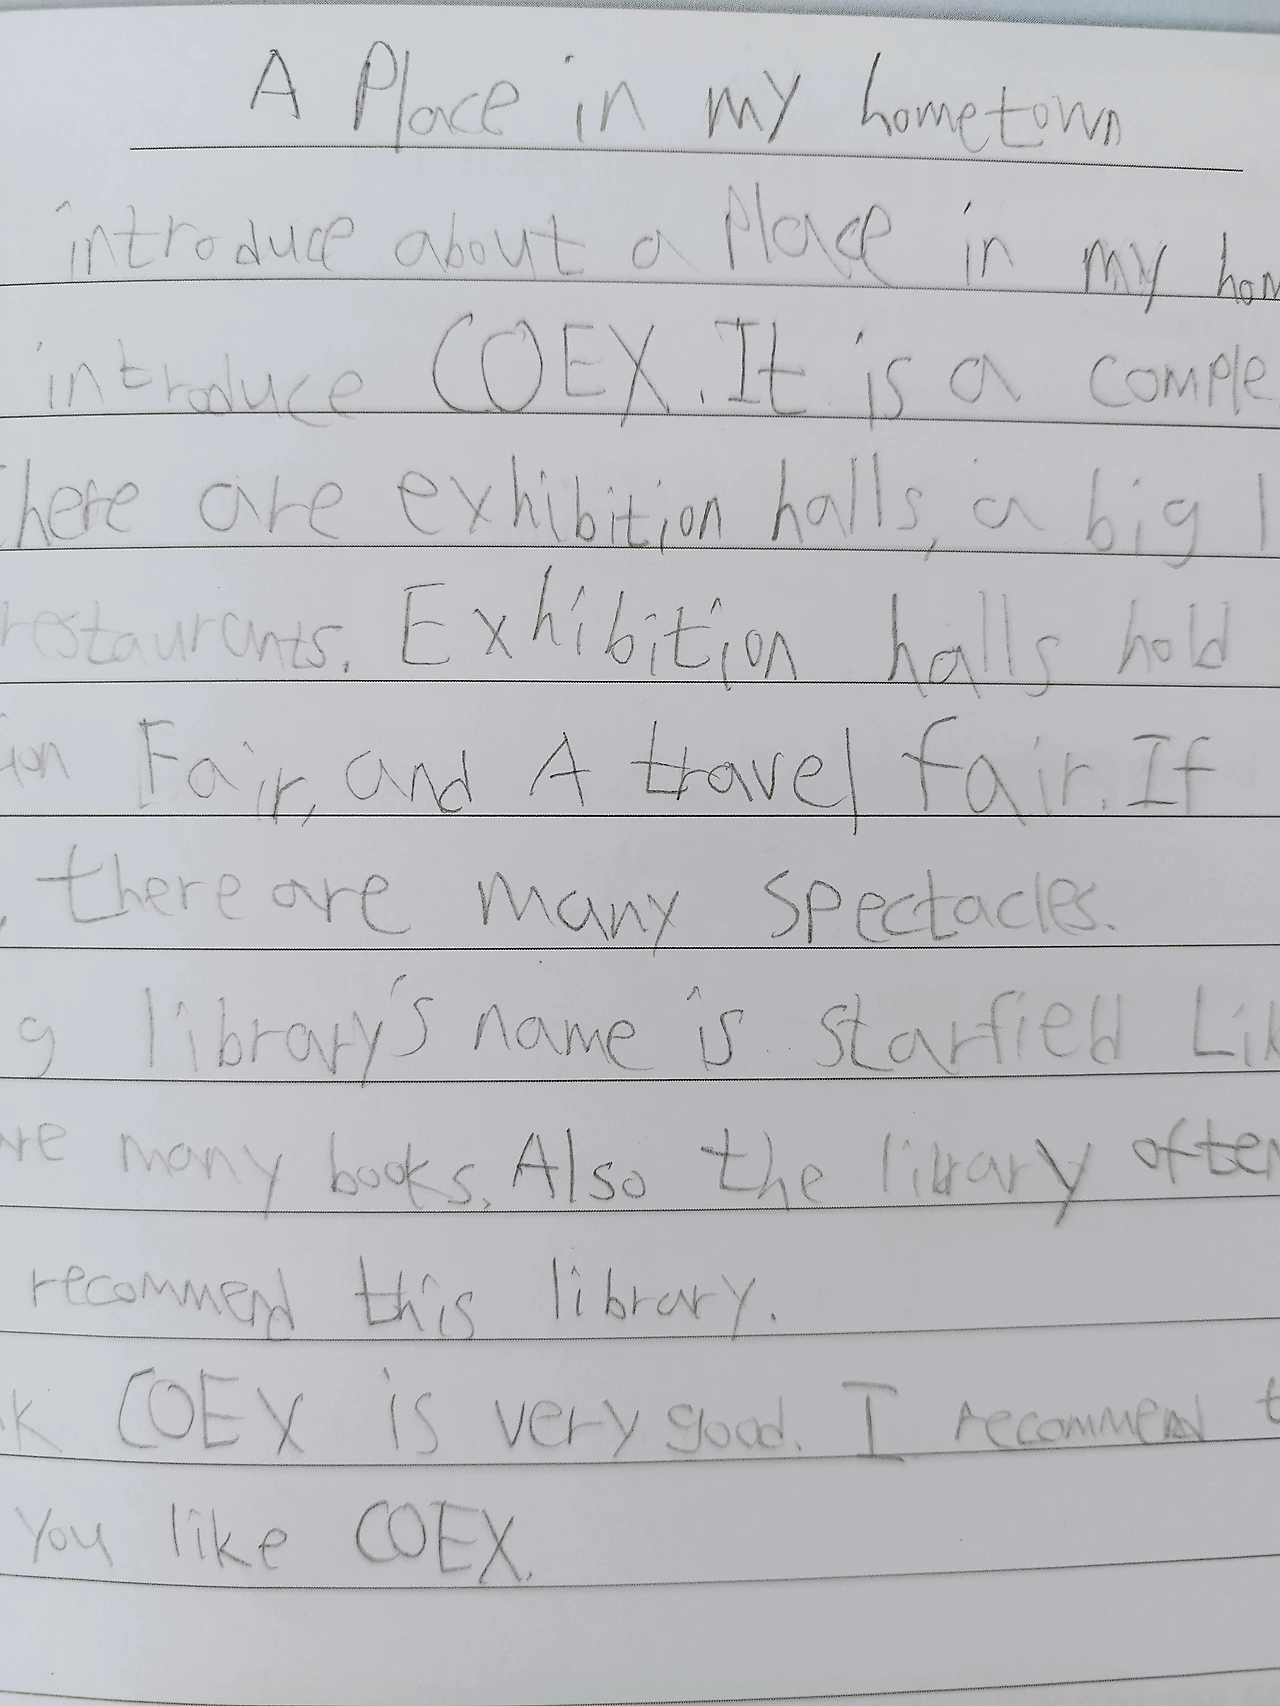 A Place in my hometown
introduce about a Place in my hom
introduce COEX. It is a comple
here are exhibition halls, a big l
restaurants. Exhibition halls hold
ion Fair, and A travel fair. If
, there are many spectacles.
g library's name is starfield Lib
are many books. Also the library often
recommend this library.
k COEX is very good. I recommend t
You like COEX.